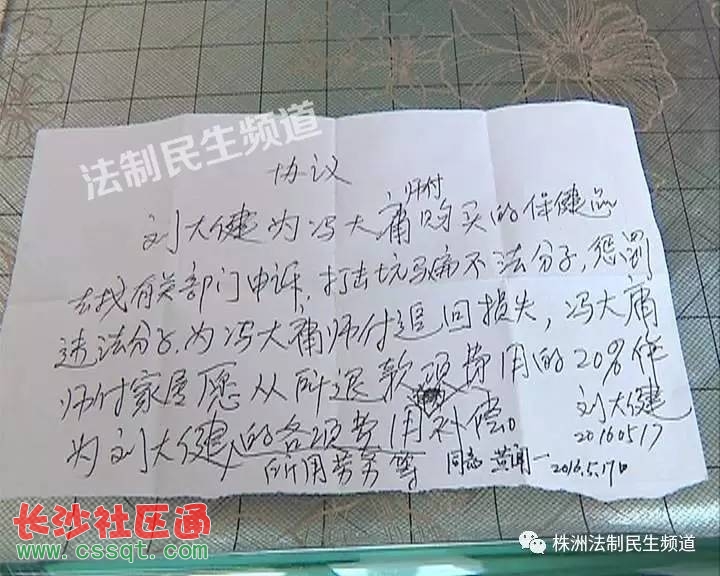 法制民生频道
协议
师付
刘大健为冯大庸购买的保健品
去找有关部门申诉，打击坑骗不法分子，惩罚
违法分子，为冯大庸师付追回损失，冯大庸
师付家属愿从所退款项费用的20%作
为刘大健的各项费用补偿。
所用劳务等
刘大健
20160517
同意 黄闻一 2016.5.17日
长沙社区通
www.cssqt.com
株洲法制民生频道